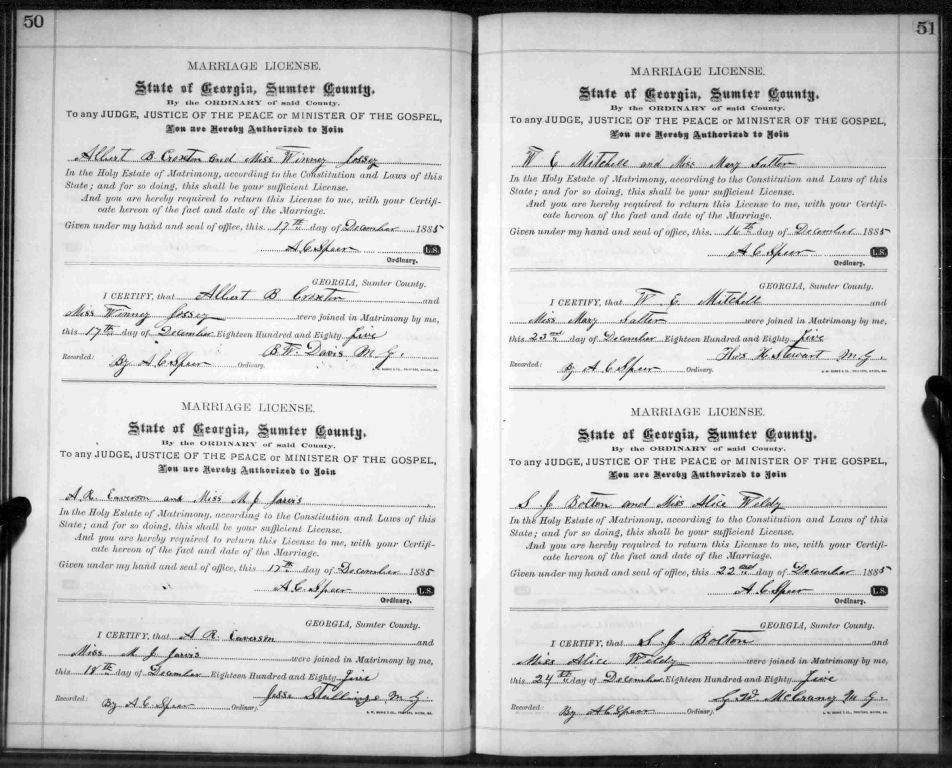 50
MARRIAGE LICENSE.
State of Georgia, Sumter County.
By the ORDINARY of said County.
To any JUDGE, JUSTICE OF THE PEACE or MINISTER OF THE GOSPEL,
You are Hereby Authorized to Join
Albert B Croxton and Miss Winney Jossey
In the Holy Estate of Matrimony, according to the Constitution and Laws of this
State; and for so doing, this shall be your sufficient License.
And you are hereby required to return this License to me, with your Certifi-
cate hereon of the fact and date of the Marriage.
Given under my hand and seal of office, this 17th day of December 1885
A C Speer L.S.
Ordinary.
GEORGIA, Sumter County.
I CERTIFY, that Albert B Croxton and
Miss Winney Jossey were joined in Matrimony by me,
this 17th day of December Eighteen Hundred and Eighty five
B. W. Davis M. G.
Recorded: By A C Speer Ordinary.
MARRIAGE LICENSE.
State of Georgia, Sumter County.
By the ORDINARY of said County.
To any JUDGE, JUSTICE OF THE PEACE or MINISTER OF THE GOSPEL,
You are Hereby Authorized to Join
A. R. Eaverson and Miss M. J Jarvis
In the Holy Estate of Matrimony, according to the Constitution and Laws of this
State; and for so doing, this shall be your sufficient License.
And you are hereby required to return this License to me, with your Certifi-
cate hereon of the fact and date of the Marriage.
Given under my hand and seal of office, this 17th day of December 1885
A. C. Speer L.S.
Ordinary.
GEORGIA, Sumter County.
I CERTIFY, that A R. Eaverson and
Miss M J Jarvis were joined in Matrimony by me,
this 18th day of December Eighteen Hundred and Eighty five
Jesse Stallings M. G.
Recorded: By A C Speer Ordinary.
51
MARRIAGE LICENSE.
State of Georgia, Sumter County.
By the ORDINARY of said County.
To any JUDGE, JUSTICE OF THE PEACE or MINISTER OF THE GOSPEL,
You are Hereby Authorized to Join
W E Mitchell and Miss Mary
In the Holy Estate of Matrimony, according to the Constitution and Laws of this
State; and for so doing, this shall be your sufficient License.
And you are hereby required to return this License to me, with your Certifi-
cate hereon of the fact and date of the Marriage.
Given under my hand and seal of office, this 16th day of December 1885
A C Speer L.S.
Ordinary.
GEORGIA, Sumter County.
I CERTIFY, that W E Mitchell and
Miss Mary were joined in Matrimony by me,
this 23rd day of December Eighteen Hundred and Eighty five
H. Stewart M. G.
Recorded: By A C Speer Ordinary.
MARRIAGE LICENSE.
State of Georgia, Sumter County.
By the ORDINARY of said County.
To any JUDGE, JUSTICE OF THE PEACE or MINISTER OF THE GOSPEL,
You are Hereby Authorized to Join
S J Bolton and Miss Alice Weldy
In the Holy Estate of Matrimony, according to the Constitution and Laws of this
State; and for so doing, this shall be your sufficient License.
And you are hereby required to return this License to me, with your Certifi-
cate hereon of the fact and date of the Marriage.
Given under my hand and seal of office, this 22nd day of December 1885
A C Speer L.S.
Ordinary.
GEORGIA, Sumter County.
I CERTIFY, that S J Bolton and
Miss Alice Weldy were joined in Matrimony by me,
this 24th day of December Eighteen Hundred and Eighty five
McCraney M. G.
Recorded: By A C Speer Ordinary.